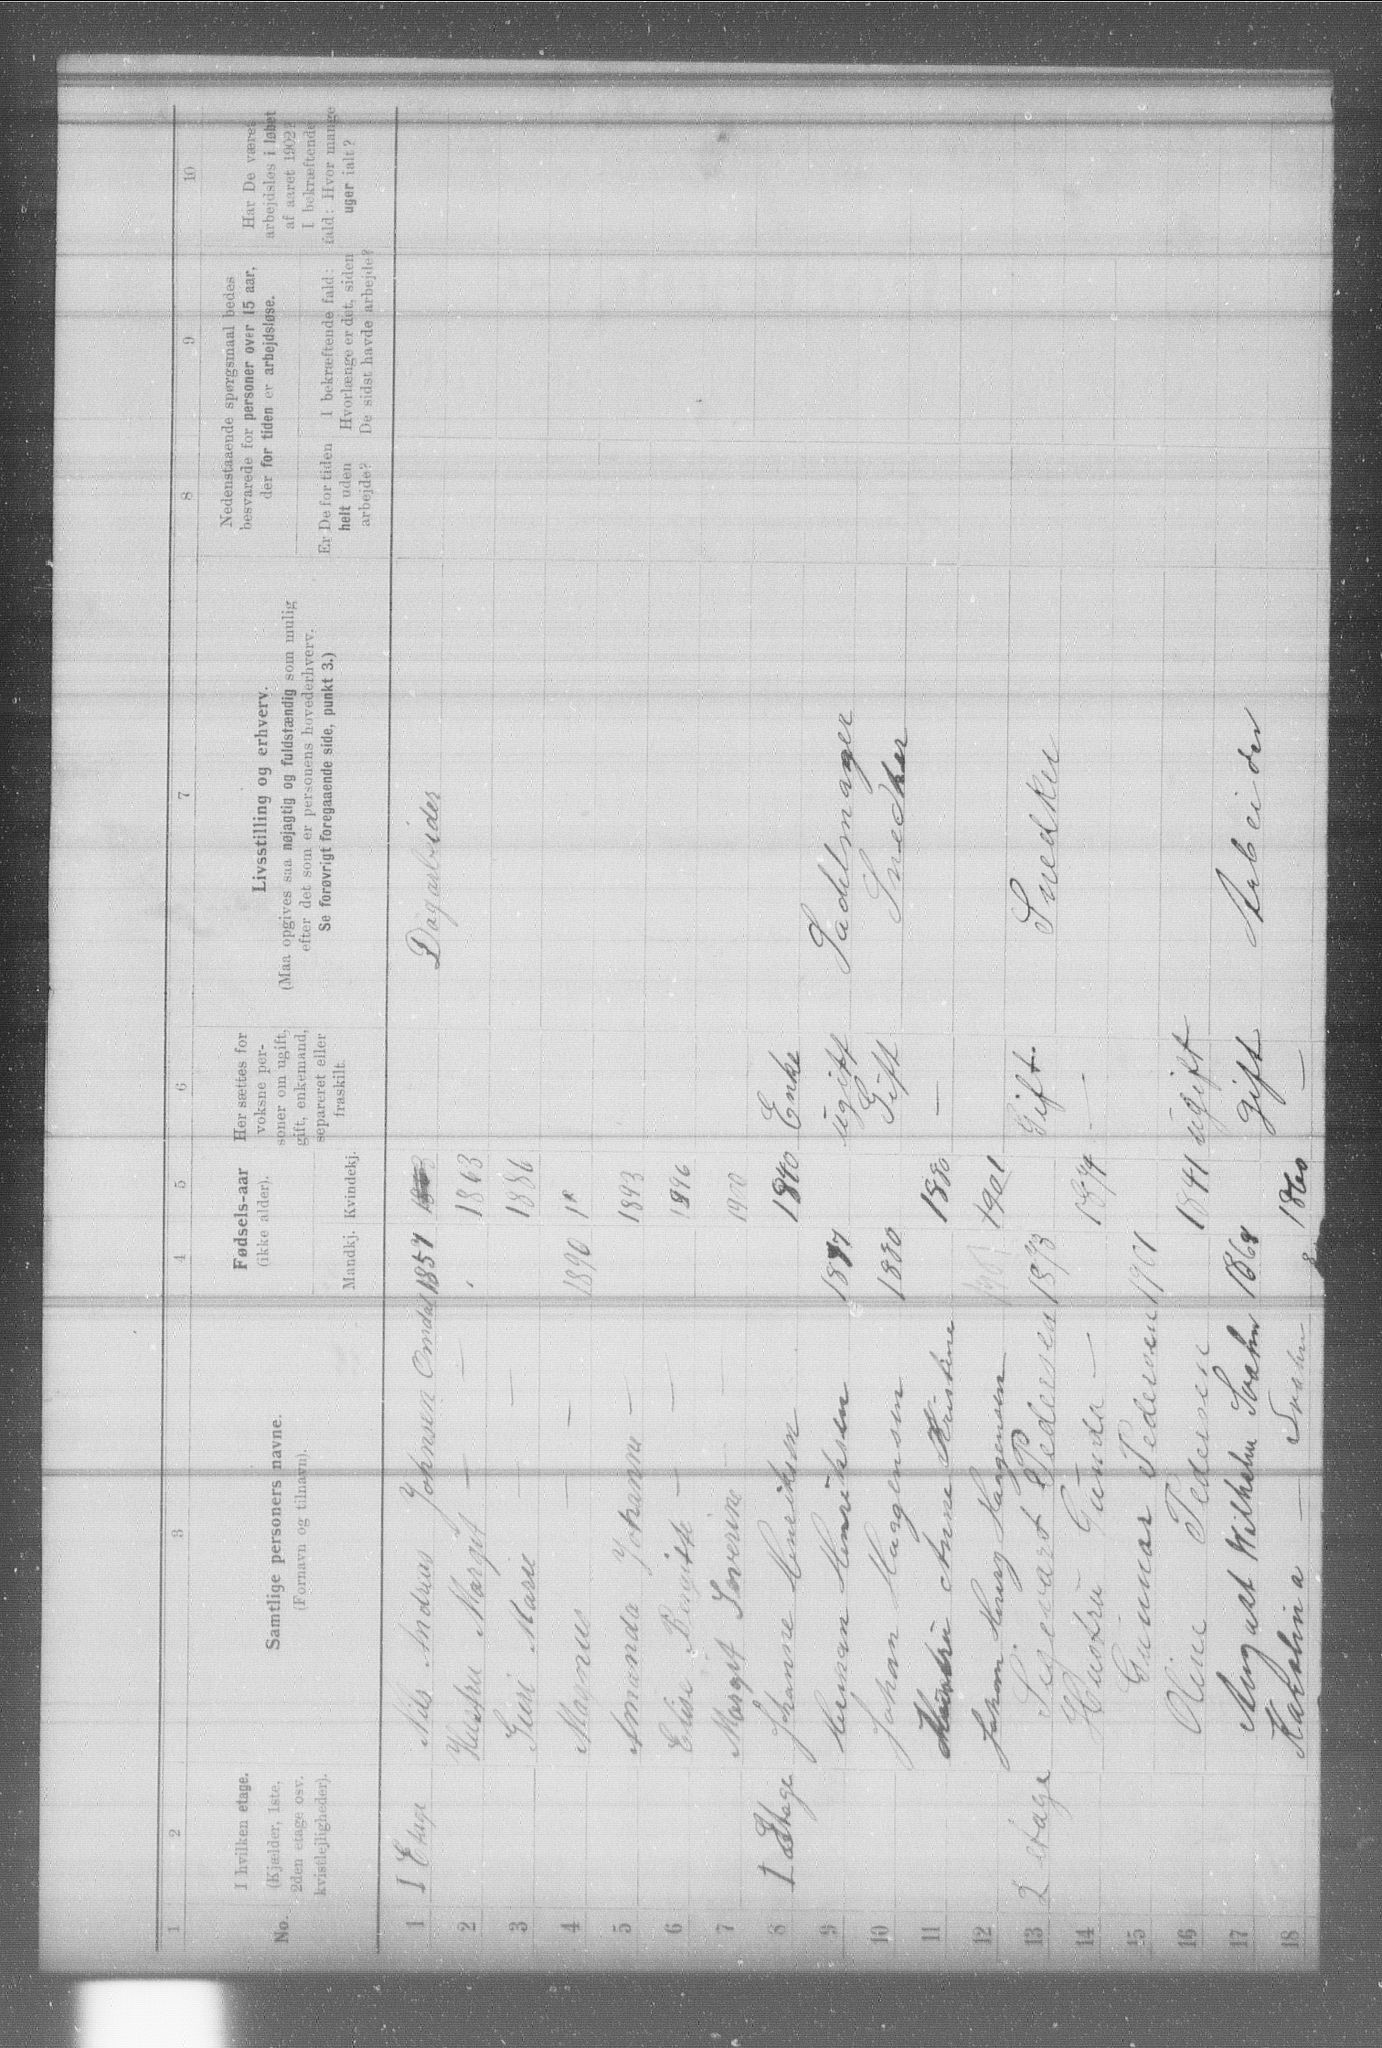 1 2 3 4 5 6 7 8 9 10
No.
I hvilken etage.
(Kjælder, 1ste,
2den etage osv.
kvistlejligheder).
Samtlige personers navne.
(Fornavn og tilnavn).
Fødsels-aar
(ikke alder).
Mandkj. Kvindekj.
Her sættes for
voksne per-
soner om ugift,
gift, enkemand,
separeret eller
fraskilt.
Livsstilling og erhverv.
(Maa opgives saa nøjagtig og fuldstændig som mulig
efter det som er personens hovederhverv.
Se forøvrigt foregaaende side, punkt 3.)
Nedenstaaende spørgsmaal bedes
besvarede for personer over 15 aar,
der for tiden er arbejdsløse.
Er De for tiden
helt uden
arbejde?
I bekræftende fald:
Hvorlænge er det, siden
De sidst havde arbejde?
Har De været
arbejdsløs i løbet
af aaret 1902?
I bekræftende
fald: Hvor mange
uger ialt?
1 I Etage Nils Andreas Johnsen Omdal 1857 Dagarbeider
2 Hustru Margit — — 1863
3 Siri Marie — — 1886
4 Magnus — — 1890
5 Amanda Johanne — 1893
6 Elise Birgitte — — 1896
7 Margit Severine — — 1900
8 1 Etage Johanne Henriksen 1840 Enke
9 Herman Henriksen 1877 ugift Sadelmager
10 Johan Haagensen 1880 Gift Snedker
11 Hustru Anne Kristine 1880 —
12 Johan Henry Haagensen 1901
13 2 etage Sigevart Pedersen 1873 Gift. Snedker
14 Hustru Gunda — 1874 —
15 Gunnar Pedersen 1901
16 Oline Pedersen 1841 ugift
17 August Wilhelm 1868 gift Arbeider
18 — 1860 —